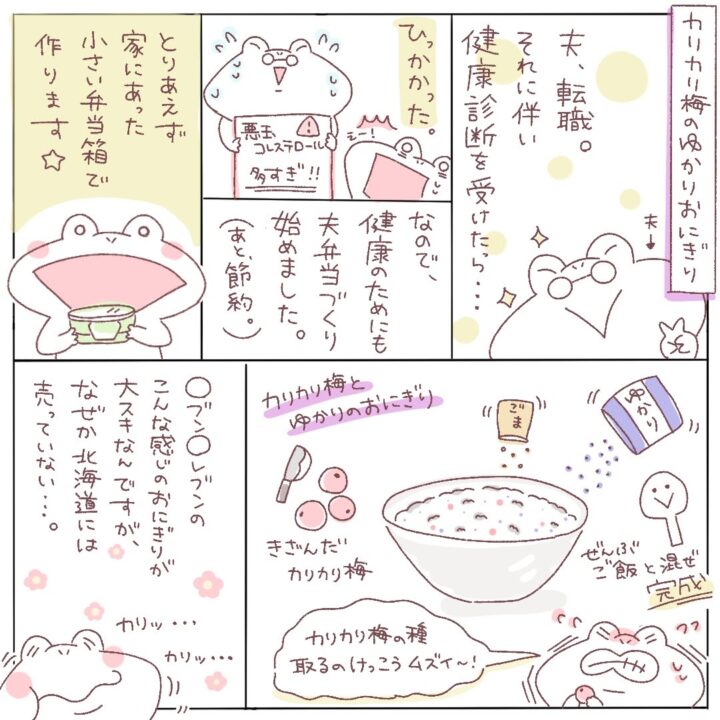 カリカリ梅のゆかりおにぎり
夫、転職。
それに伴い
健康診断を受けたら・・・
夫
ひっかかった。
悪玉
コレステロール
多すぎ!!
なので、
健康のためにも
夫弁当づくり
始めました。
(あと、節約。)
とりあえず
家にあった
小さい弁当箱で
作ります☆
カリカリ梅と
ゆかりのおにぎり
ごま
ゆかり
きざんだ
カリカリ梅
ぜんぶ
ご飯と混ぜ
完成
カリカリ梅の種
取るのけっこうムズイ〜!
〇ブン〇レブンの
こんな感じのおにぎりが
大スキなんですが、
なぜか北海道には
売っていない・・・。
カリッ・・・
カリッ・・・